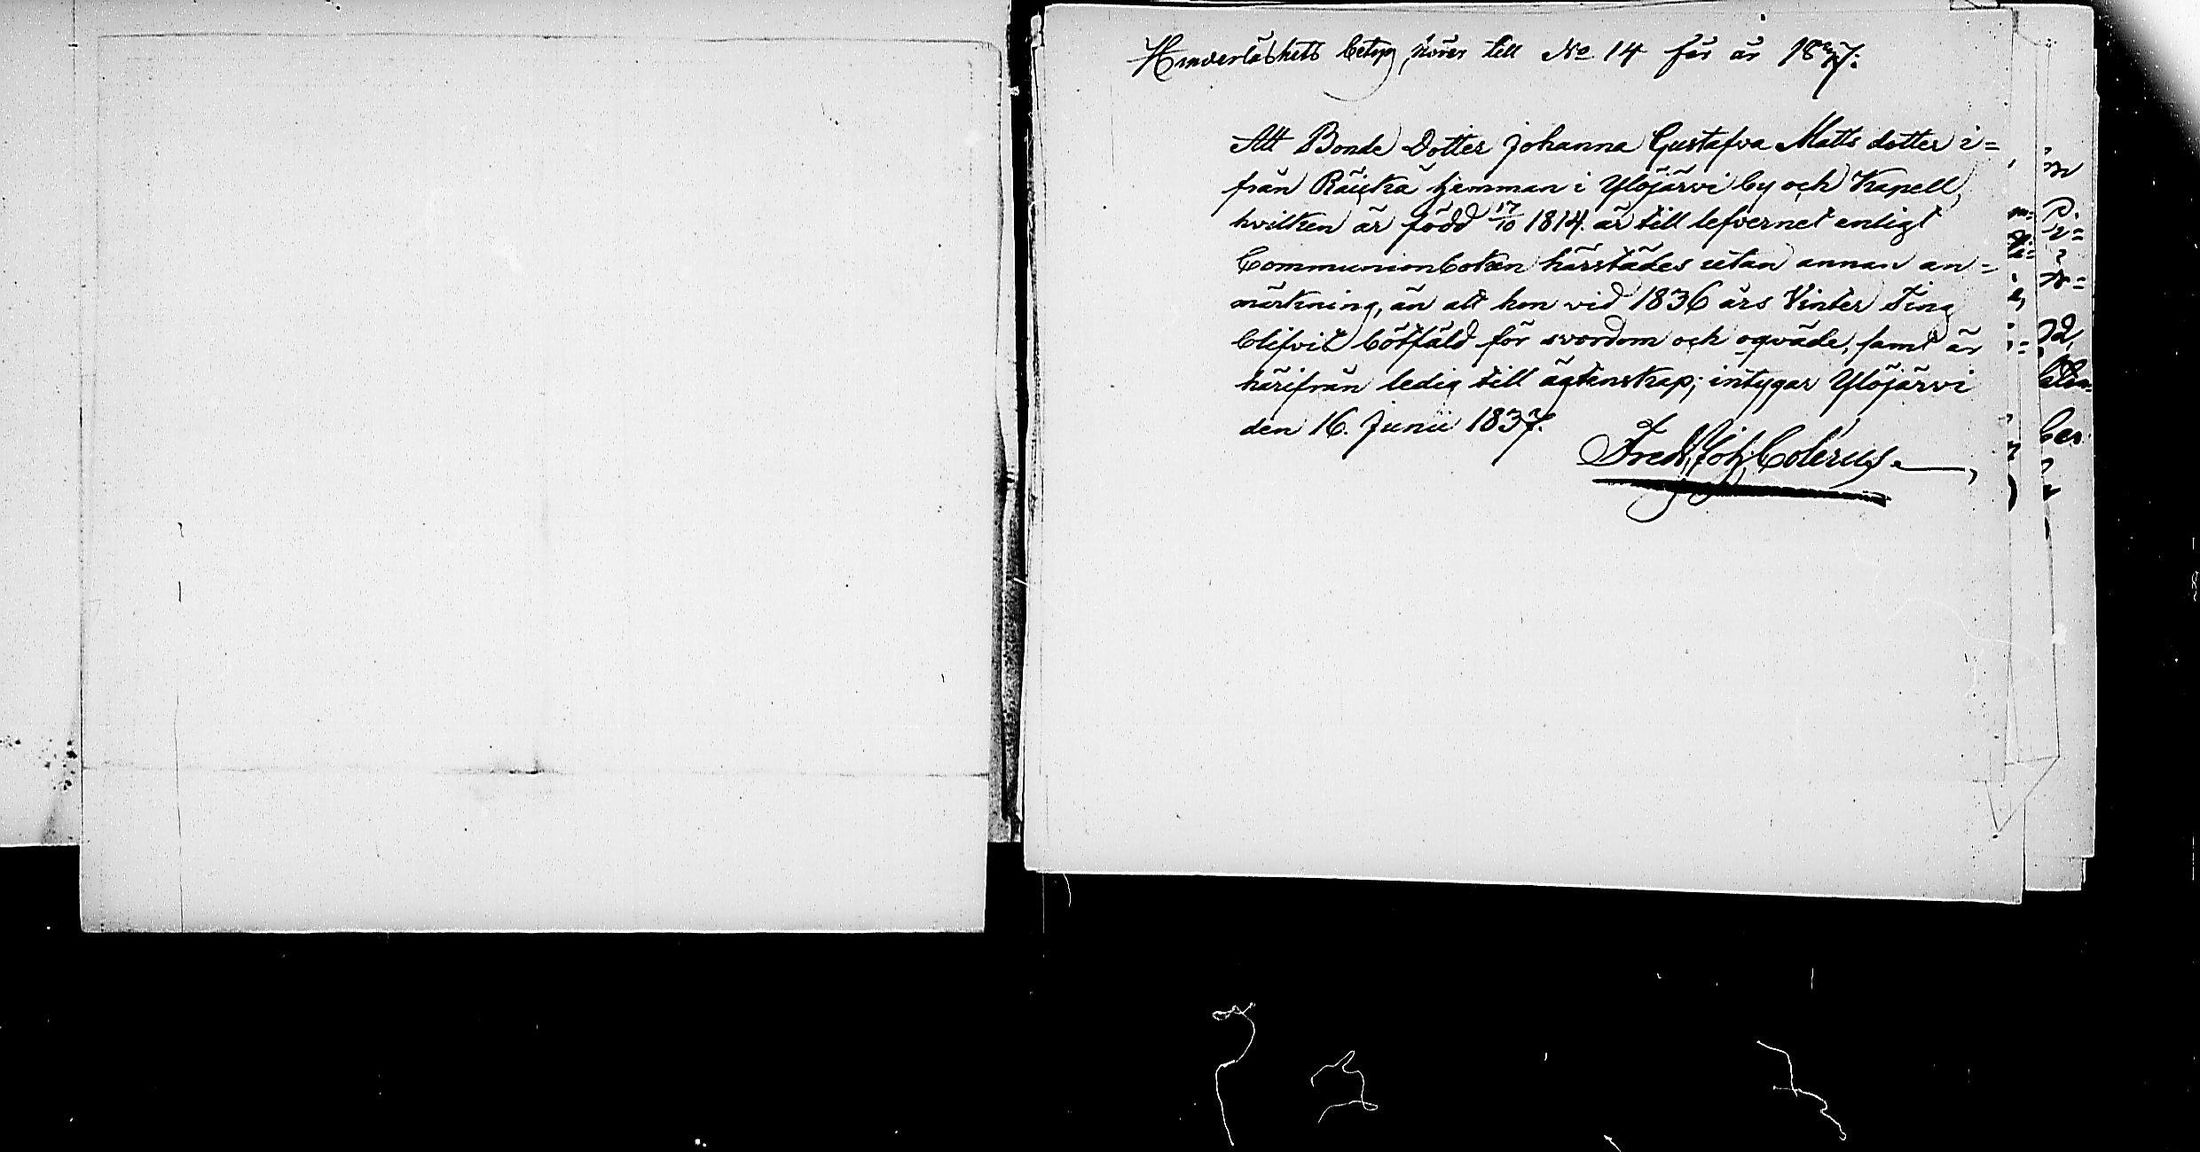 Hinderlöshets betyg hörer till No 14 för år 1837:
Att Bonde Dotter Johanna Gustafva Matts dotter i=
från Räickä hemman i Ylöjärvi by och Kapell,
hvilken är född 17/10 1814. är till lefvernet enligt
Communionboken härstädes utan annan an=
märkning, än att hon vid 1836 års Vinter Ting
blifvit bötfäld för svordom och oqväde, samt är
härifrån ledig till ägtenskap; intygar Ylöjärvi
den 16. Junii 1837.
Fredr. Joh. Colerus.